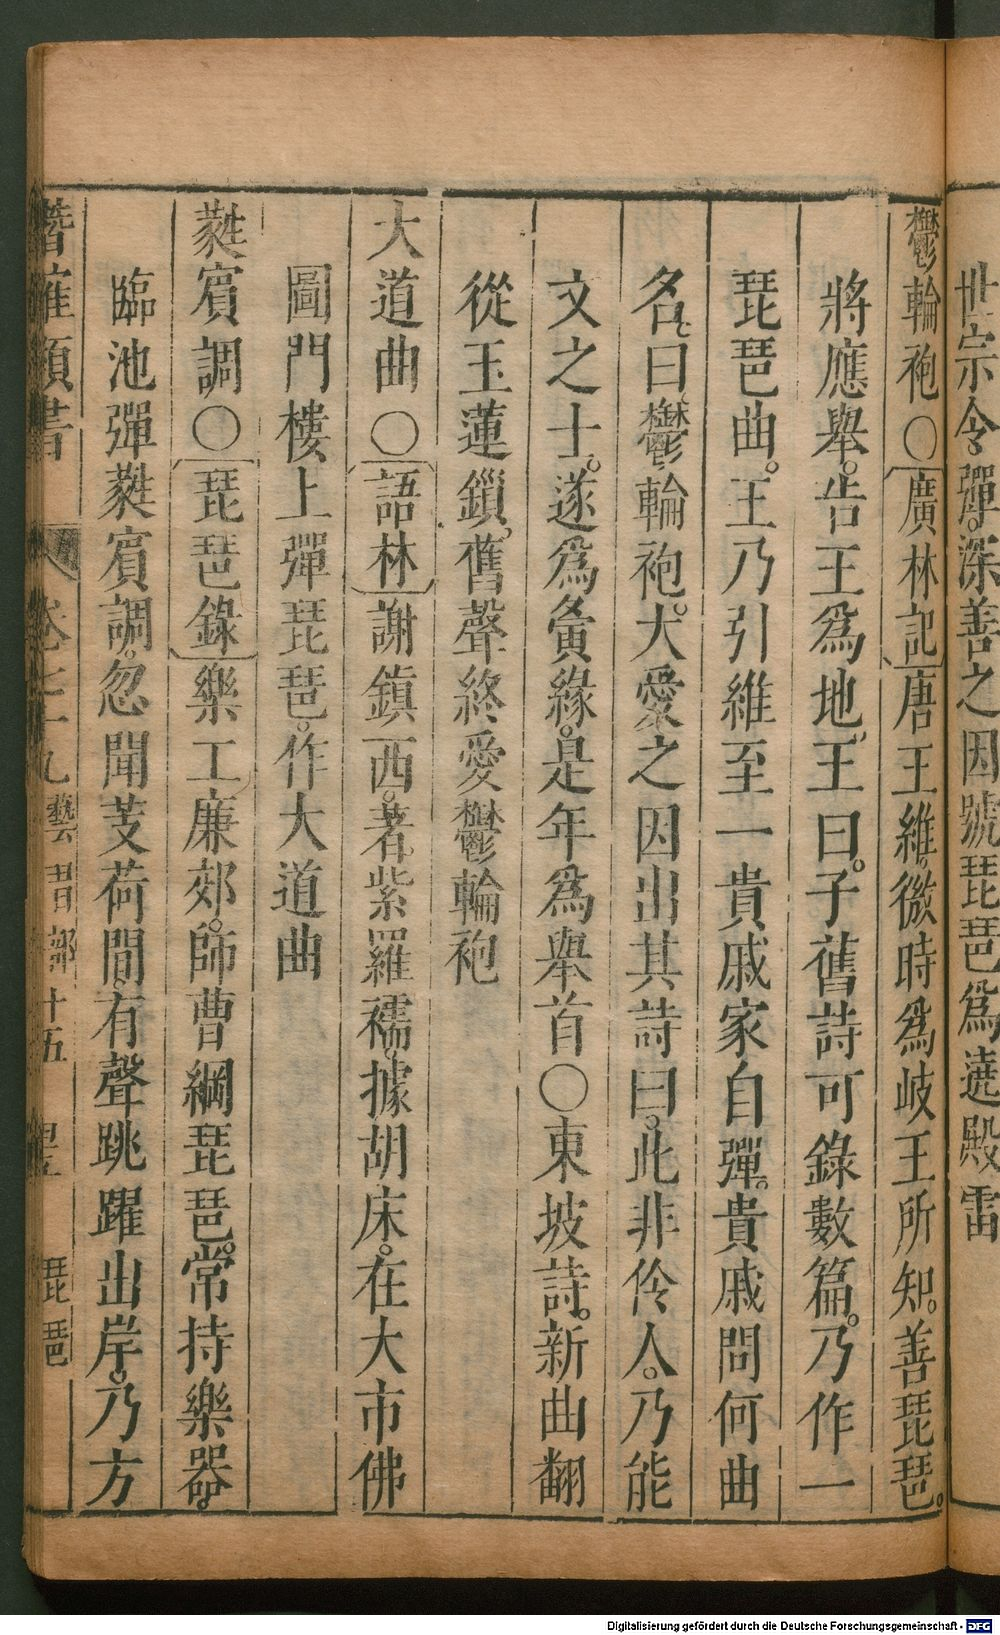 世宗令彈。深善之因號琵琶爲遶殿雷
鬱輪袍〇廣林記唐王維。微時爲岐王所知。善琵琶。
將應舉。告王爲地。王曰。子舊詩可錄數篇。乃作一
琵琶曲。王乃引維至一貴戚家自彈。貴戚問何曲
名。曰鬱輪袍。大愛之因出其詩曰。此非伶人。乃能
文之士。遂爲夤緣。是年爲舉首〇東坡詩。新曲翻
從玉蓮鎖。舊聲終愛鬱輪袍
大道曲〇語林謝鎮西。著紫羅襦。據胡床。在大市佛
圖門樓上彈琵琶。作大道曲
蕤賓調〇琵琶錄樂工廉郊。師曹綱琵琶。常持樂器。
臨池彈蕤賓調。忽聞芰荷間。有聲跳躍出岸。乃方
潛確類書 卷七十九 藝習部十五 琵琶
Digitalisierung gefördert durch die Deutsche Forschungsgemeinschaft - DFG